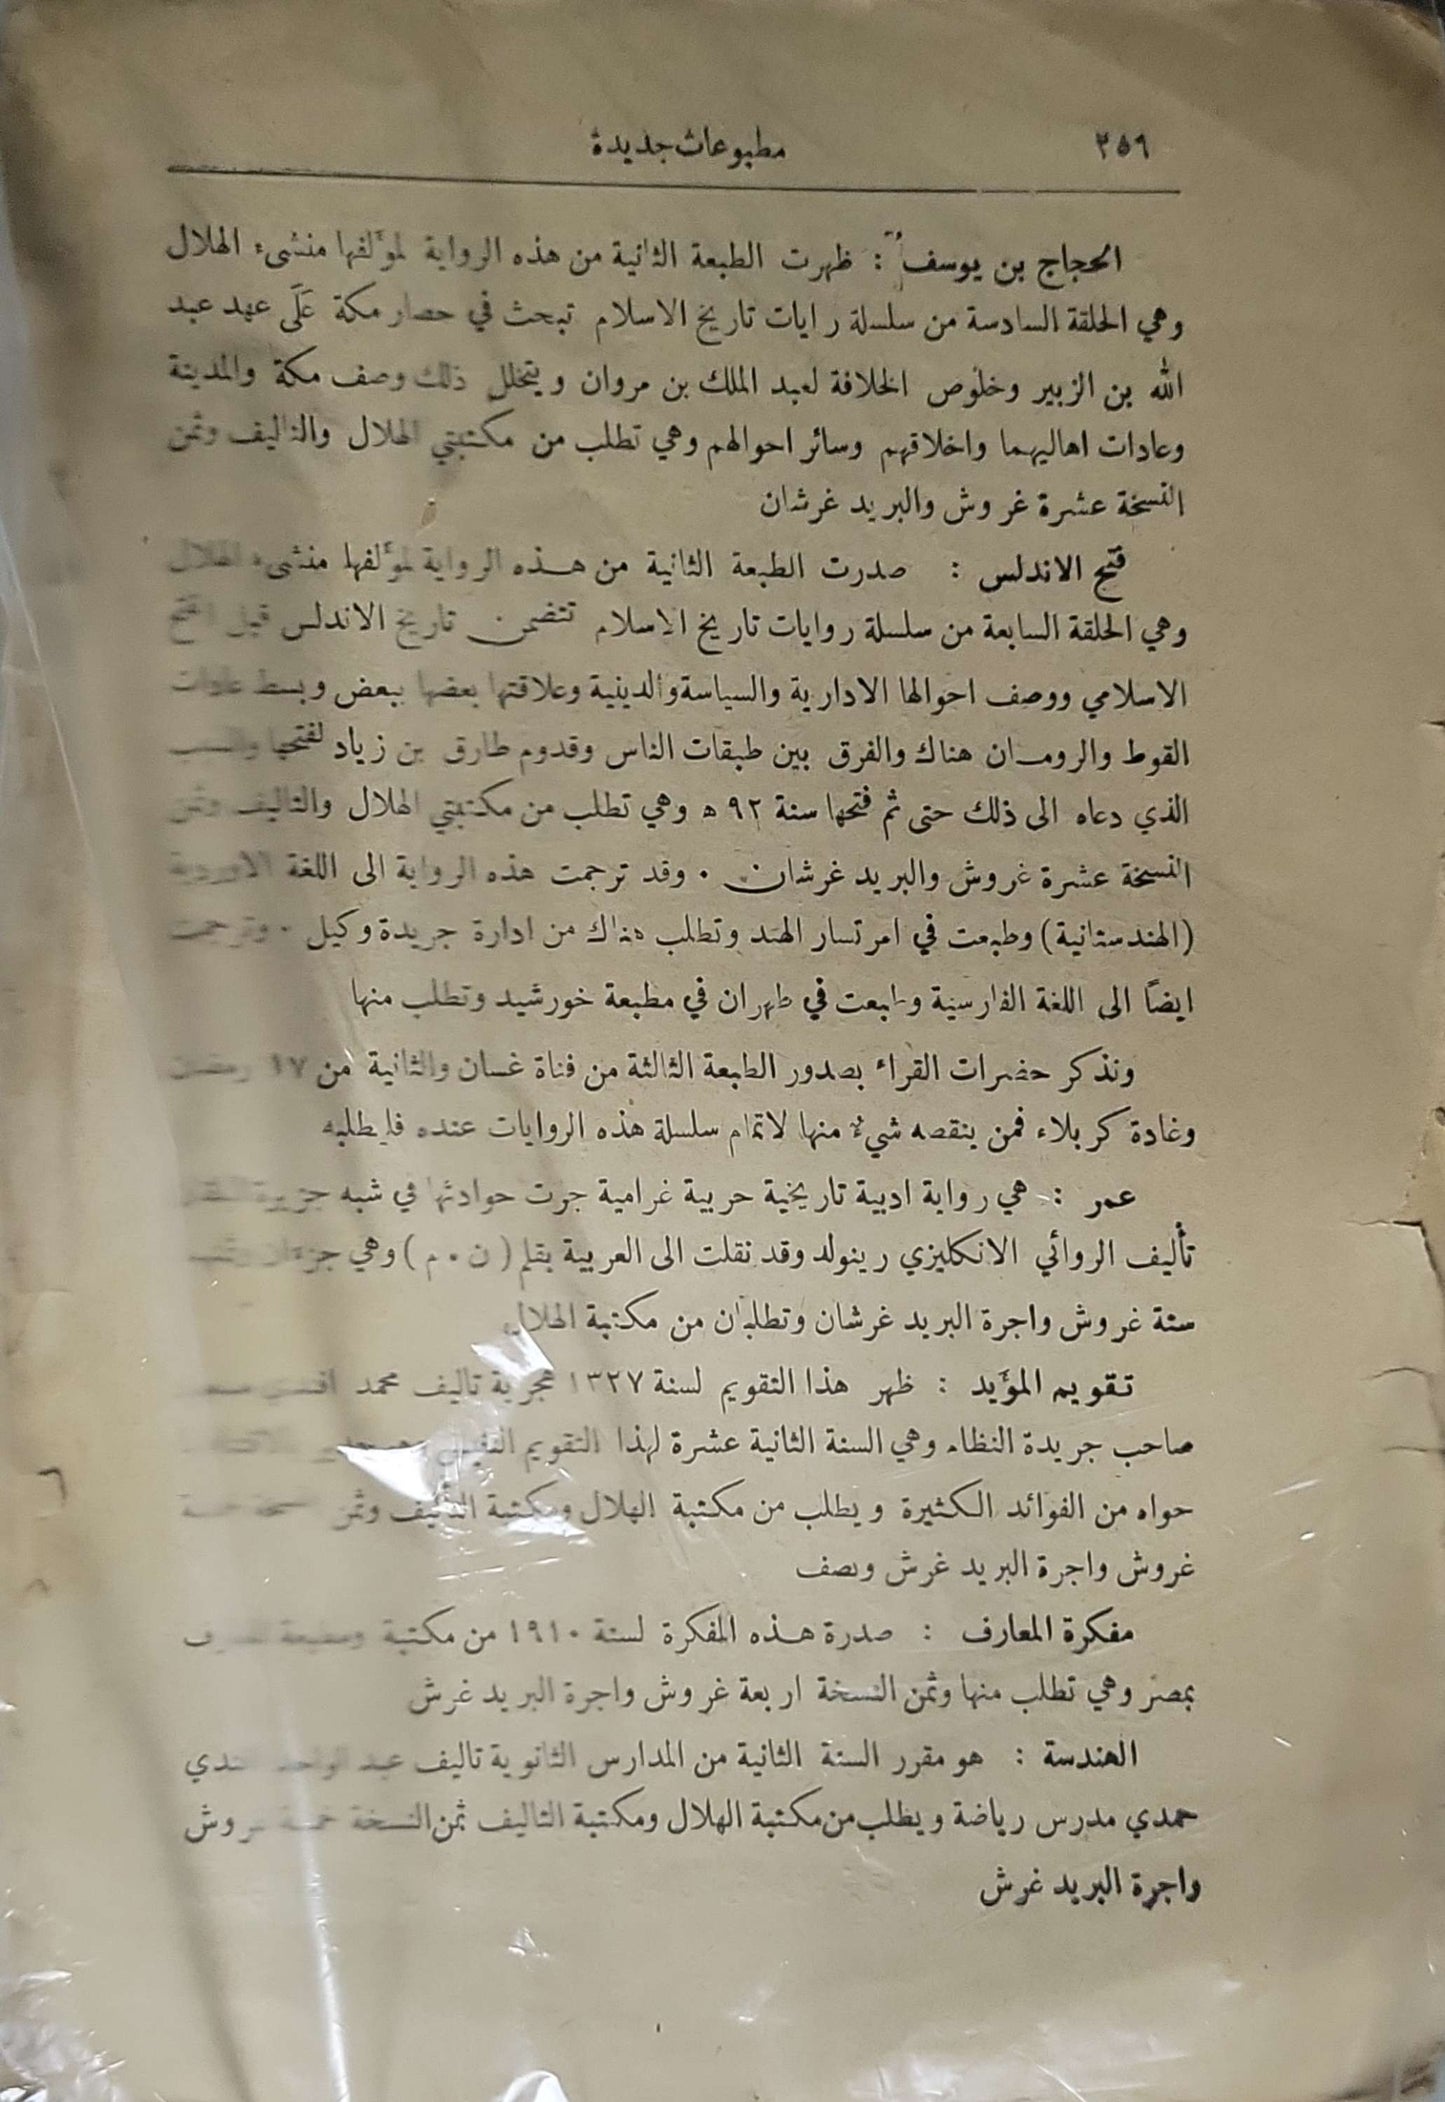 ٢٥٦
مطبوعات جديدة
الحجاج بن يوسف : ظهرت الطبعة الثانية من هذه الرواية لمؤلفها منشىء الهلال
وهي الحلقة السادسة من سلسلة رايات تاريخ الاسلام تبحث في حصار مكة عَلَى عهد عبد
الله بن الزبير وخلوص الخلافة لعبد الملك بن مروان ويتخلل ذلك وصف مكة والمدينة
وعادات اهاليهما واخلاقهم وسائر احوالهم وهي تطلب من مكتبتي الهلال والتاليف وثمن
النسخة عشرة غروش والبريد غرشان
فتح الاندلس : صدرت الطبعة الثانية من هـذه الرواية لمؤلفها منشىء الهلال
وهي الحلقة السابعة من سلسلة روايات تاريخ الاسلام تتضمن تاريخ الاندلس قبل الفتح
الاسلامي ووصف احوالها الادارية والسياسة والدينية وعلاقتها بعضها ببعض وبسط عادات
القوط والرومـان هناك والفرق بين طبقات الناس وقدوم طارق بن زياد لفتحها والسبب
الذي دعاه الى ذلك حتى تم فتحها سنة ٩٢ ه وهي تطلب من مكتبتي الهلال والتاليف وثمن
النسخة عشرة غروش والبريد غرشان . وقد ترجمت هذه الرواية الى اللغة الاوردية
(الهندستانية) وطبعت في امرتسار الهند وتطلب هناك من ادارة جريدة وكيل . وترجمت
ايضًا الى اللغة الفارسية وطبعت في طهران في مطبعة خورشيد وتطلب منها
ونذكر حضرات القراء بصدور الطبعة الثالثة من فتاة غسان والثانية من ١٧ رمضان
وغادة كربلاء فمن ينقصه شيء منها لاتمام سلسلة هذه الروايات عنده فليطلبه
عمر : هي رواية ادبية تاريخية حربية غرامية جرت حوادثها في شبه جزيرة
تأليف الروائي الانكليزي رينولد وقد نقلت الى العربية بقلم (ن . م) وهي جزءان
ستة غروش واجرة البريد غرشان وتطلبان من مكتبة الهلال
تقويم المؤيد : ظهر هذا التقويم لسنة ١٣٢٧ هجرية تاليف محمد افندي
صاحب جريدة النظام وهي السنة الثانية عشرة لهذا التقويم النفيس وهو
حواه من الفوائد الكثيرة ويطلب من مكتبة الهلال ومكتبة التأليف وثمن النسخة خمسة
غروش واجرة البريد غرش ونصف
مفكرة المعارف : صدرة هـذه المفكرة لسنة ١٩١٠ من مكتبة ومطبعة المعارف
بمصر وهي تطلب منها وثمن النسخة اربعة غروش واجرة البريد غرش
الهندسة : هو مقرر السنة الثانية من المدارس الثانوية تاليف عبد الواحد افندي
حمدي مدرس رياضة ويطلب من مكتبة الهلال ومكتبة التاليف ثمن النسخة خمسة غروش
واجرة البريد غرش